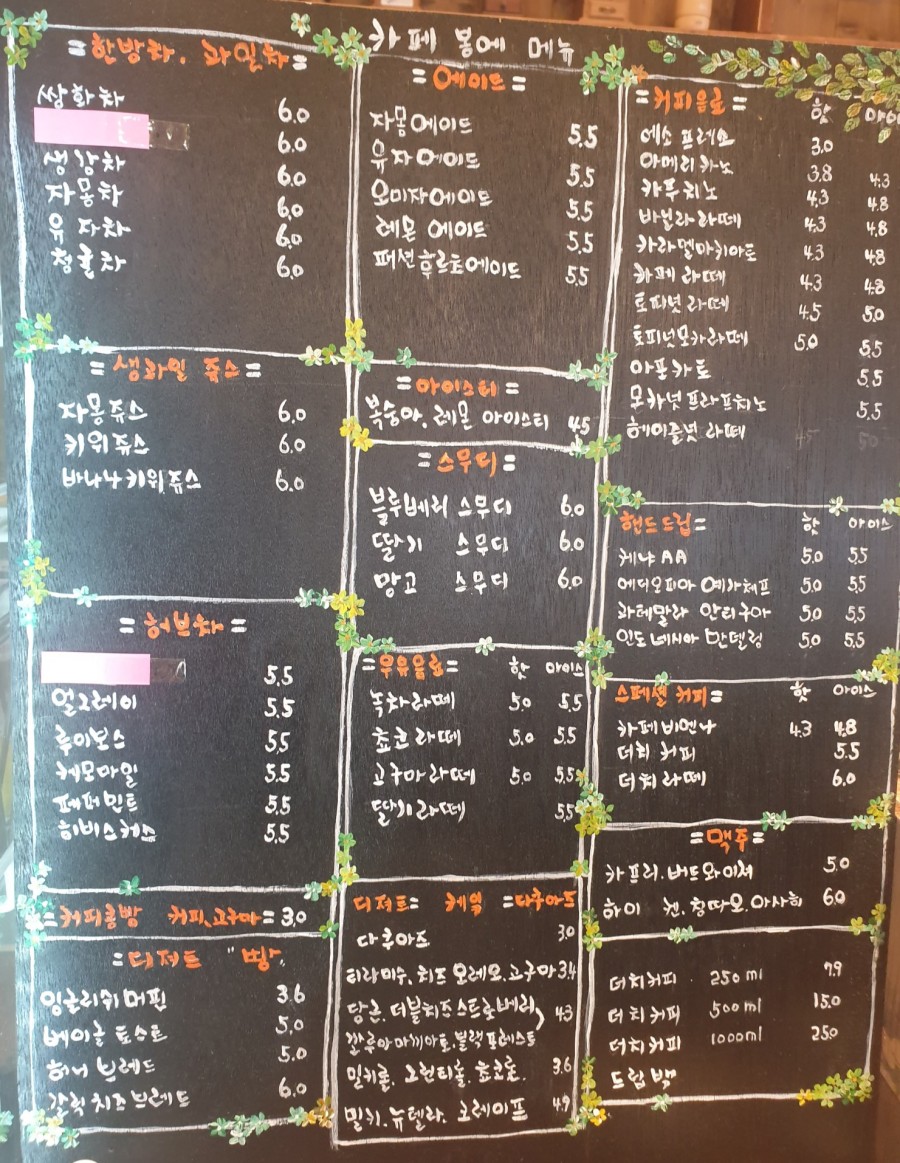 카페 봉에 메뉴
=한방차. 과일차=
쌍화차 6.0
6.0
생강차 6.0
자몽차 6.0
유자차 6.0
청귤차 6.0
=생과일 쥬스=
자몽쥬스 6.0
키위쥬스 6.0
바나나키위쥬스 6.0
=허브차=
5.5
얼그레이 5.5
루이보스 5.5
케모마일 5.5
페퍼민트 5.5
히비스커스 5.5
=커피콩빵 커피,고구마= 3.0
=디저트 "빵"
잉글리쉬머핀 3.6
베이글 토스트 5.0
허니 브레드 5.0
갈릭치즈브레드 6.0
=에이드=
자몽에이드 5.5
유자에이드 5.5
오미자에이드 5.5
레몬 에이드 5.5
패션후르츠에이드 5.5
=아이스티=
복숭아. 레몬 아이스티 4.5
=스무디=
블루베리 스무디 6.0
딸기 스무디 6.0
망고 스무디 6.0
=우유음료= 핫 아이스
녹차라떼 5.0 5.5
쵸코라떼 5.0 5.5
고구마라떼 5.0 5.5
딸기라떼 5.5
디저트= 케잌 =다쿠아즈
다쿠아즈 3.0
티라미수, 치즈 오레오. 고구마 3.4
당근. 더블치즈스트로베리, 4.3
깔루아마끼아또.블랙포레스트
밀키롤. 오렌지롤. 쵸코롤. 3.6
밀키.뉴텔라. 크레이프 4.9
=커피음료= 핫 아이
에소프레소 3.0
아메리카노 3.8 4.3
카푸치노 4.3 4.8
바닐라라떼 4.3 4.8
카라멜마키아토 4.3 4.8
카페라떼 4.3 4.8
토피넛 라떼 4.5 5.0
토피넛모카라떼 5.0 5.5
아포카토 5.5
모카넛프라프치노 5.5
헤이즐넛 라떼 4.5 5.0
핸드드립= 핫 아이스
케냐AA 5.0 5.5
에디오피아 예가체프 5.0 5.5
과테말라 안티구아 5.0 5.5
인도네시아 만델링 5.0 5.5
스페셜 커피= 핫 아이스
카페비엔나 4.3 4.8
더치 커피 5.5
더치라떼 6.0
=맥주=
카프리.버드와이져 5.0
하이넨.칭따오.아사히 6.0
더치커피 250ml 7.9
더치커피 500ml 15.0
더치커피 1000ml 25.0
드립백